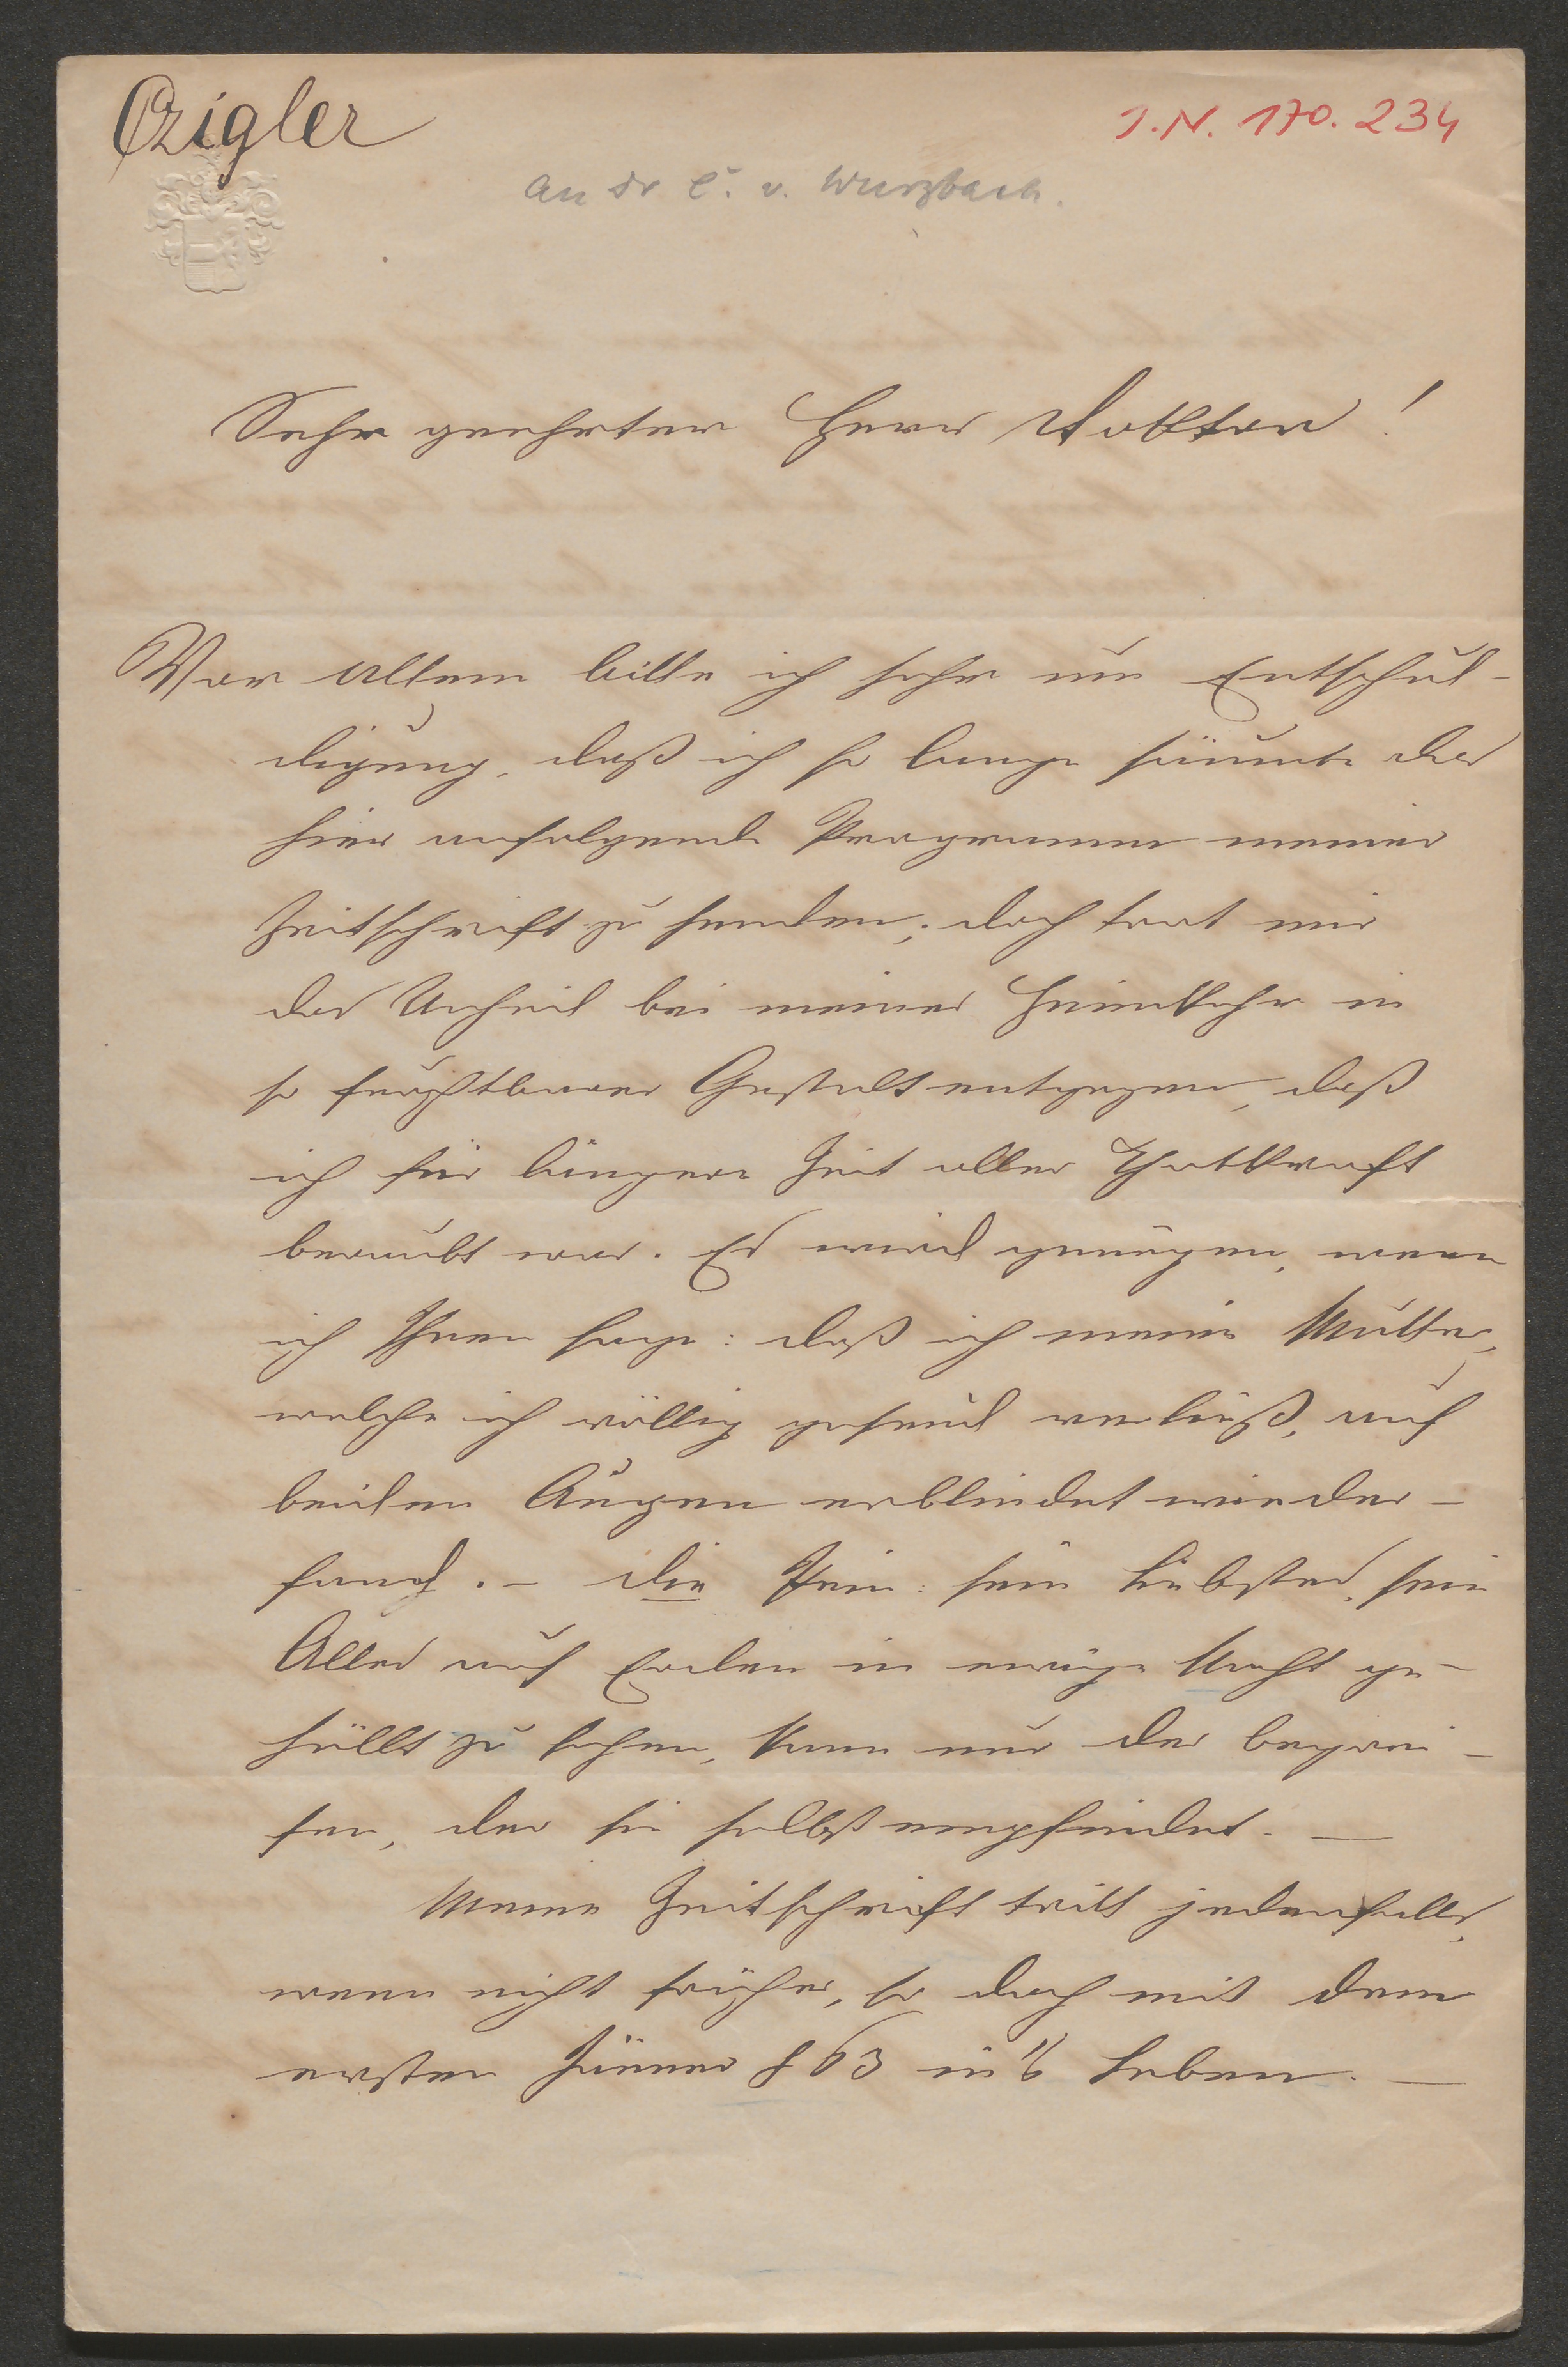 Czigler
I.N. 170.234
an Dr C. v. Wurzbach.
Sehr geehrter Herr Doktor!
Vor Allem bitte ich sehr um Entschul-
digung, daß ich so lange säumte das
hier anfolgende Programm meiner
Zeitschrift zu senden; doch trat mir
das Unheil bei meiner Heimkehr in
so furchtbarer Gestalt entgegen, daß
ich für längere Zeit aller Thatkraft
beraubt war. Es wird genügen, wenn
ich Ihnen sage: daß ich meine Mutter,
welche ich völlig gesund verließ, auf
beiden Augen erblindet wieder-
fand. – die Pein: sein Liebstes, sein
Alles auf Erden in ewige Nacht ge-
hüllt zu sehen, kann nur der begrei-
fen, der sie selbst empfindet. —
Meine Zeitschrift tritt jedenfalls,
wenn nicht früher, so doch mit dem
ersten Jänner 863 in's Leben. —